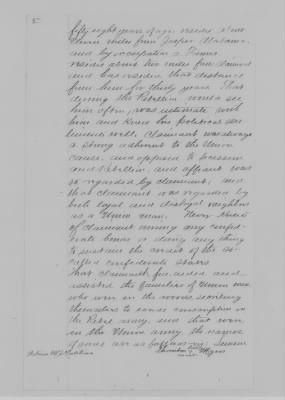 fifty eight years of age reside nine
teen miles from Jasper Alabama
and by occupation a Farmer
resides about two miles from claimant
and has resided that distance
from him for thirty years. That
during the Rebellion would see
him often, was intimate with
him and knew his political sen
timents well. Claimant was always
a strong adherent to the Union
cause, and opposed to Secession
and Rebellion, and affiant was
so regarded by claimant, and
that claimant was regarded by
both loyal and disloyal neighbors
as a Union man. Never heard
of claimant owning any confed
erate bonds or doing any thing
to sustain the credit of the so
called confederate states
that claimant fed, aided and
assisted the families of Union men
who were in the woods, secreting
themselves to evade conscription in
the Rebel army, and that were
in the Union army the names
of some are as follows viz